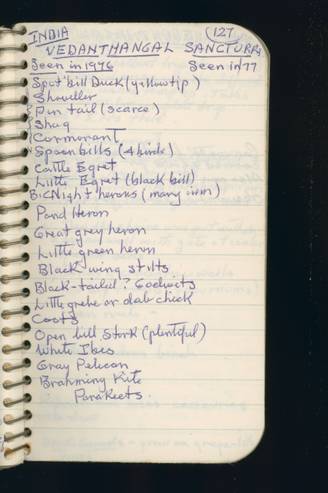 INDIA
127
VEDANTHANGAL SANCTURRY
Seen in 1976 Seen in 77
Spot bill Duck (yellow tip)
Shoveller
Pin tail (scarce)
Shag
Cormorant
Spoon bills (4 birds)
Cattle Egret
Little Egret (black bill)
B.C. Night herons (many imm)
Pond Heron
Great grey heron
Little green heron
Black wing stilts
Black-tailed? Godwits
Little grebe or dab chick
Coots
Open bill Stork (plentiful)
White Ibis
Gray Pelican
Brahminy Kite
Parakeets.